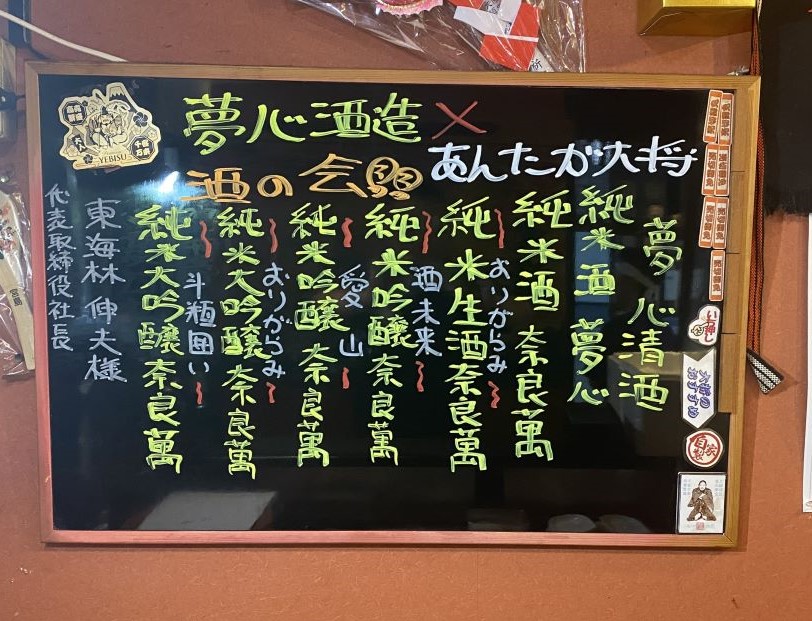 夢心酒造×
あんたが大将
酒の会
夢心清酒
純米酒 夢心
純米酒 奈良萬
純米生酒 奈良萬
~おりがらみ~
純米吟醸 奈良萬
~酒未来~
純米吟醸 奈良萬
~愛山~
純米大吟醸 奈良萬
~おりがらみ~
純米大吟醸 奈良萬
~斗瓶囲い~
東海林伸夫様
代表取締役社長
YEBISU
いち押し
大将の
おすすめ
自家製